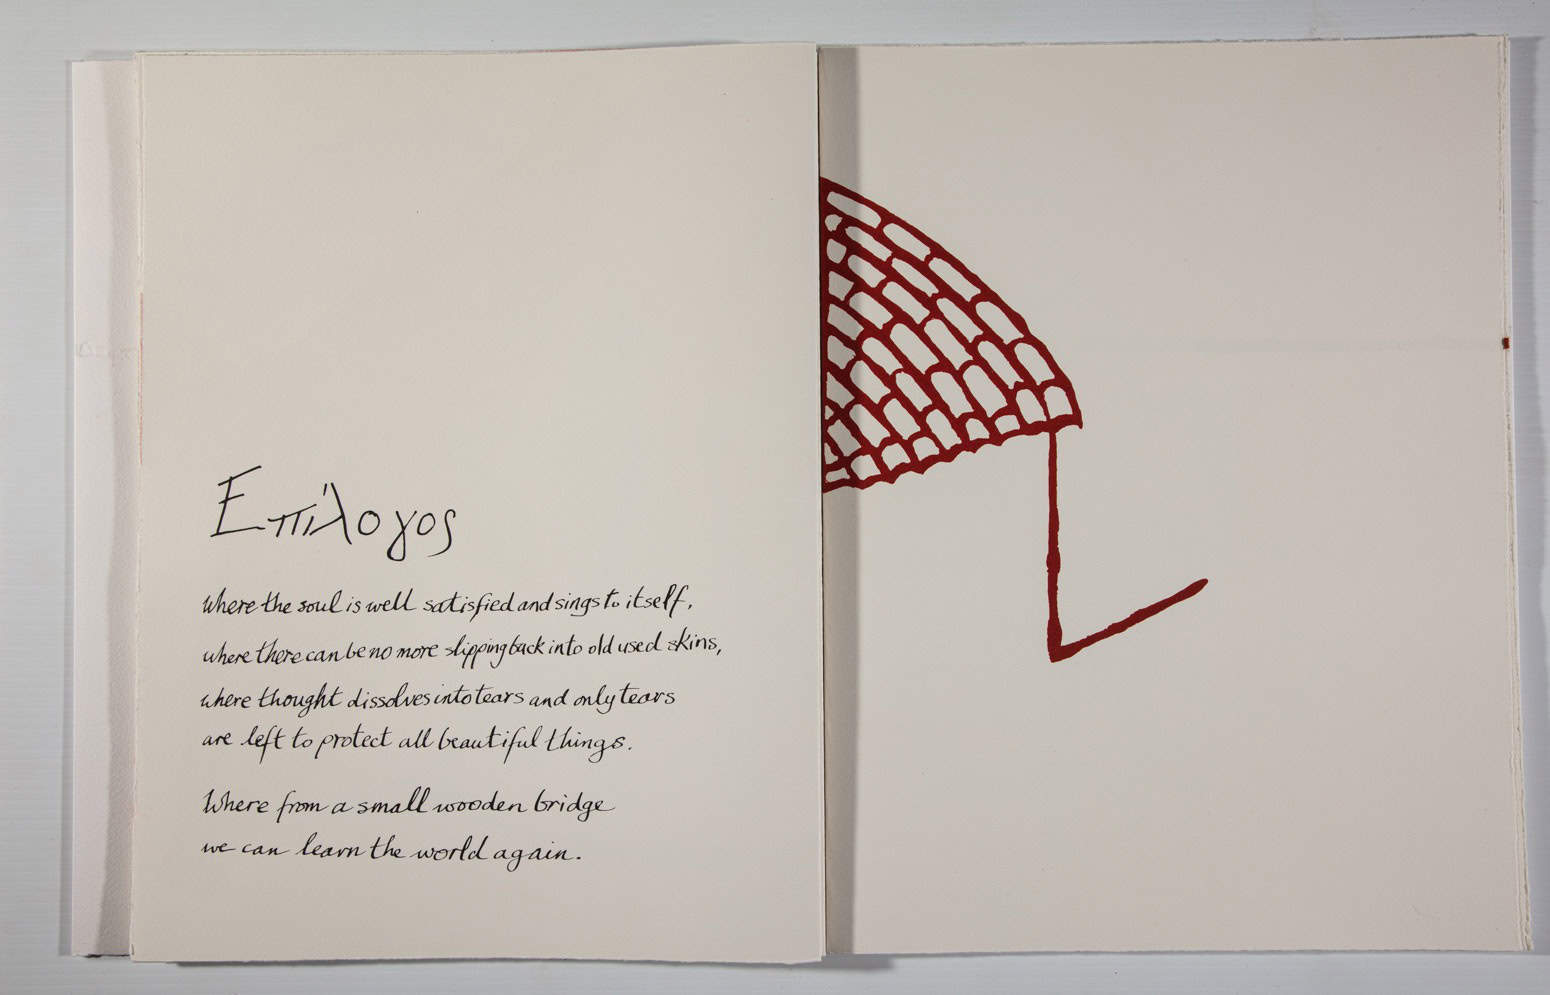 Επίλογος
Where the soul is well satisfied and sings to itself,
where there can be no more slipping back into old used skins,
where thought dissolves into tears and only tears
are left to protect all beautiful things.
Where from a small wooden bridge
we can learn the world again.